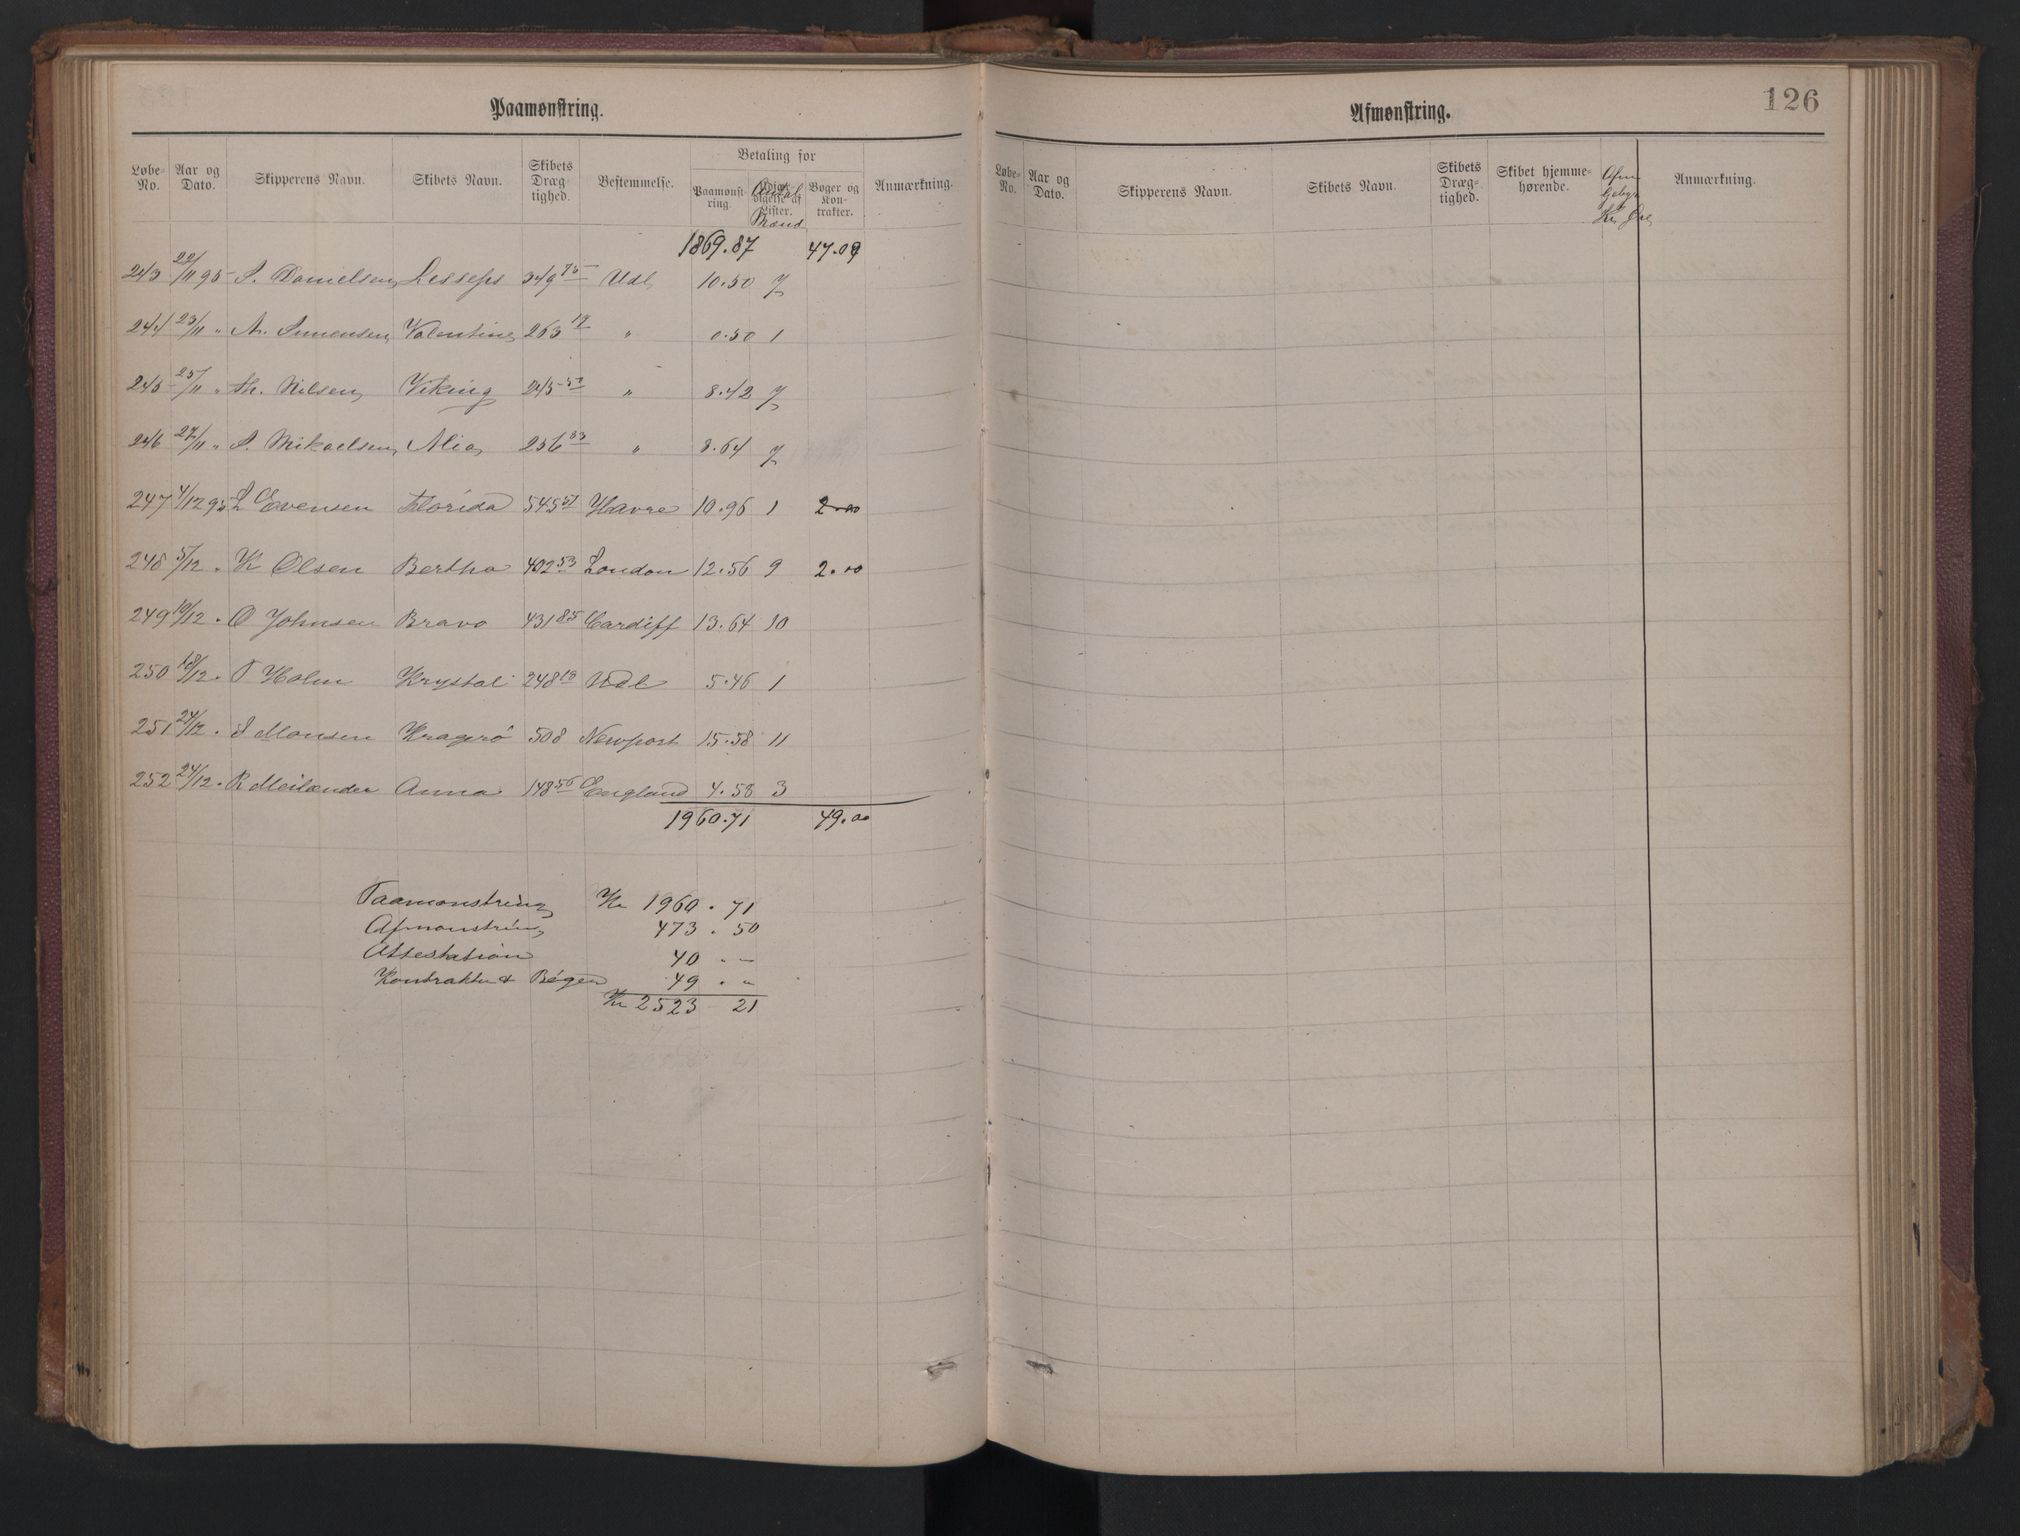 Paamønstring.
Løbe-No. Aar og Dato. Skipperens Navn. Skibets Navn. Skibets Dræg-tighed. Bestemmelse. Betaling for Paamønst-ring. Antal Mand Bøger og Kon-trakter. Anmærkning.
1869.87 47.00
243 22/11 95 S. Danielsen Lesseps 349 75 Udl 10.50 7
244 23/11 " A. Simensen Valentine 263 19 " 0.50 1
245 25/11 " Th. Nilsen Viking 245 53 " 8.42 7
246 27/11 " S. Mikaelsen Alia 256 33 " 8.64 7
247 4/12 95 L Evensen Florida 545 51 Havre 10.96 1 2.00
248 5/12 " K Olsen Bertha 402 53 London 12.56 9 2.00
249 10/12 " O Johnsen Bravo 431 85 Cardiff 13.64 10
250 18/12 " T Holm Krystal 248 19 Udl 5.46 1
251 24/12 " S Monsen Kragerö 508 Newport 15.58 11
252 24/12 " R Meilænder Anna 148 56 England 4.58 3
1960.71 49.00
Paamonstring Kr 1960.71
Afmonstring 473.50
Attestation 40 " "
Kontrakter & Bøger 49 " "
Kr 2523 21
126
Afmønstring.
Løbe-No. Aar og Dato. Skipperens Navn. Skibets Navn. Skibets Dræg-tighed. Skibet hjemme-hørende. Kr Øre Anmærkning.